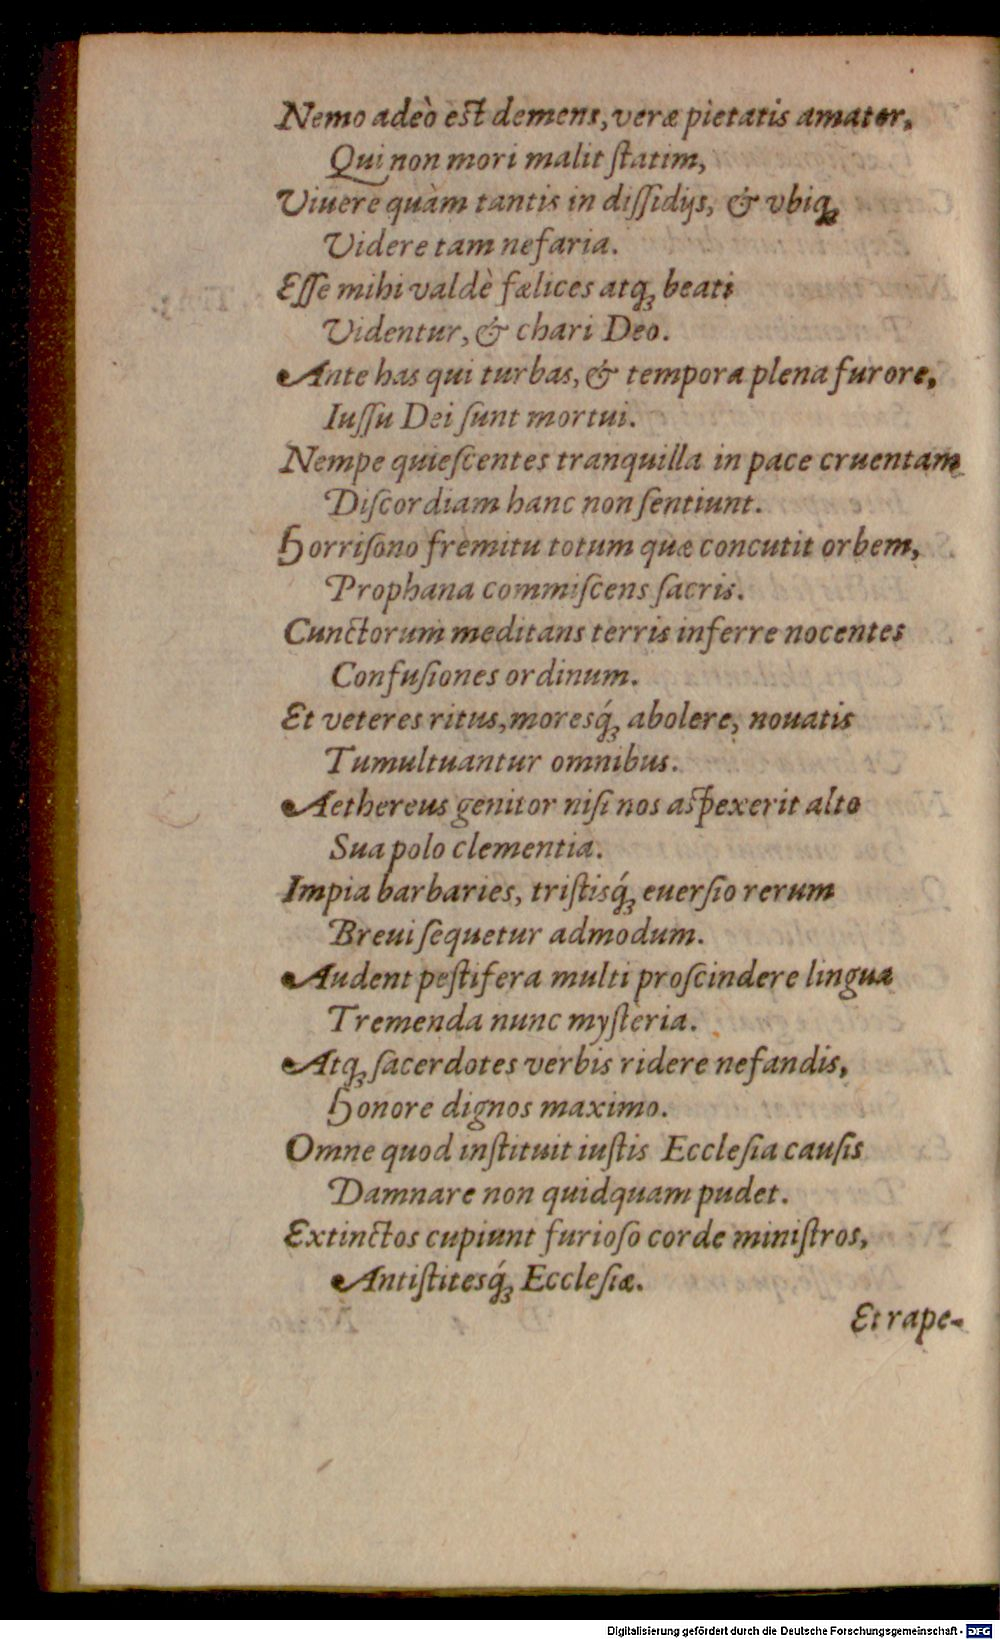 Nemo adeò est demens, veræ pietatis amator,
Qui non mori malit ſtatim,
Viuere quàm tantis in diſſidijs, & vbiqꝫ
Videre tam nefaria.
Eſſe mihi valdè fælices atqꝫ beati
Videntur, & chari Deo.
Ante has qui turbas, & tempora plena furore,
Iuſſu Dei ſunt mortui.
Nempe quieſcentes tranquilla in pace cruentam
Diſcordiam hanc non ſentiunt.
Horriſono fremitu totum quæ concutit orbem,
Prophana commiſcens ſacris.
Cunctorum meditans terris inferre nocentes
Confuſiones ordinum.
Et veteres ritus, moresq́ꝫ abolere, nouatis
Tumultuantur omnibus.
Aethereus genitor niſi nos aſpexerit alto
Sua polo clementia.
Impia barbaries, triſtisq́ꝫ euerſio rerum
Breui ſequetur admodum.
Audent peſtifera multi proſcindere lingua
Tremenda nunc myſteria.
Atqꝫ ſacerdotes verbis ridere nefandis,
Honore dignos maximo.
Omne quod inſtituit iuſtis Eccleſia cauſis
Damnare non quidquam pudet.
Extinctos cupiunt furioſo corde miniſtros,
Antiſtitesq́ꝫ Eccleſiæ.
Et rape-
Digitalisierung gefördert durch die Deutsche Forschungsgemeinschaft - DFG